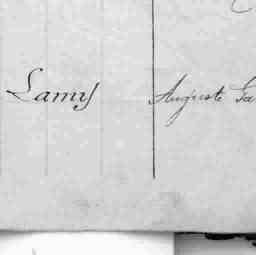 Lamy Auguste